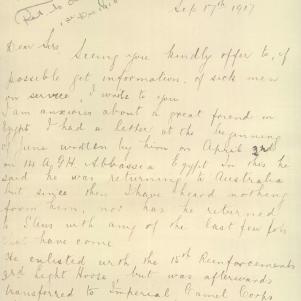 Sep 17th 1917
Dear Sirs
Seeing you kindly offer to, if
possible get information, of sick men
on service, I write to you
I am anxious about a great friend in
Egypt I had a letter at the beginning
of June written by him on April 3rd
in 14 A.G.H Abbassea Egypt In this he
said he was returning to Australia
but since then I have heard nothing
from him, nor has he returned
to I lens with any of the last few
that have come
He enlisted with the 15th Reinforcements
3rd Light Horse, but was afterwards
transferred to Imperial Camel Corps